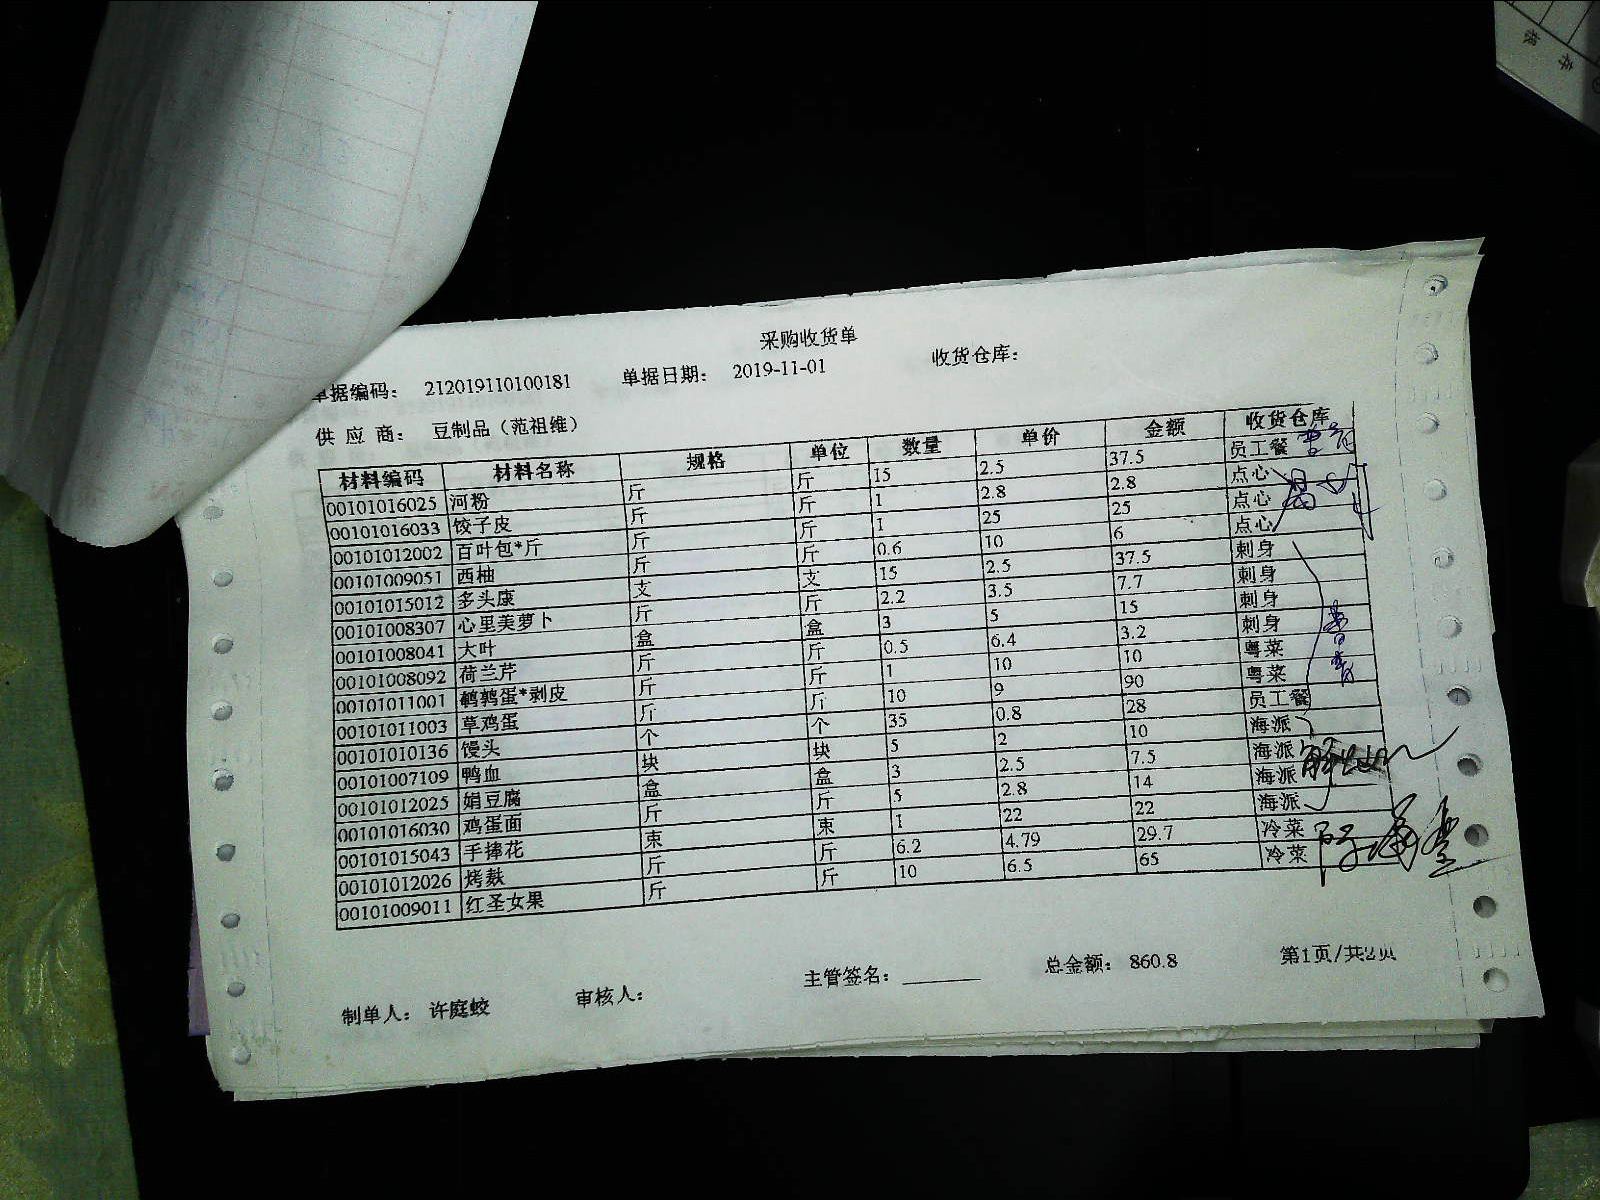 采购收货单
单据编码： 212019110100181 单据日期： 2019-11-01 收货仓库：
供 应 商： 豆制品（范祖维）
材料编码 材料名称 规格 单位 数量 单价 金额 收货仓库
00101016025 河粉 斤 斤 15 2.5 37.5 员工餐
00101016033 饺子皮 斤 斤 1 2.8 2.8 点心
00101012002 百叶包*斤 斤 斤 1 25 25 点心
00101009051 西柚 斤 斤 0.6 10 6 点心
00101015012 多头康 支 支 15 2.5 37.5 刺身
00101008307 心里美萝卜 斤 斤 2.2 3.5 7.7 刺身
00101008041 大叶 盒 盒 3 5 15 刺身
00101008092 荷兰芹 斤 斤 0.5 6.4 3.2 刺身
00101011001 鹌鹑蛋*剥皮 斤 斤 1 10 10 粤菜
00101011003 草鸡蛋 斤 斤 10 9 90 粤菜
00101010136 馒头 个 个 35 0.8 28 员工餐
00101007109 鸭血 块 块 5 2 10 海派
00101012025 娟豆腐 盒 盒 3 2.5 7.5 海派
00101016030 鸡蛋面 斤 斤 5 2.8 14 海派
00101015043 手捧花 束 束 1 22 22 海派
00101012026 烤麸 斤 斤 6.2 4.79 29.7 冷菜
00101009011 红圣女果 斤 斤 10 6.5 65 冷菜
制单人： 许庭蛟 审核人： 主管签名： 总金额： 860.8 第1页/共2页